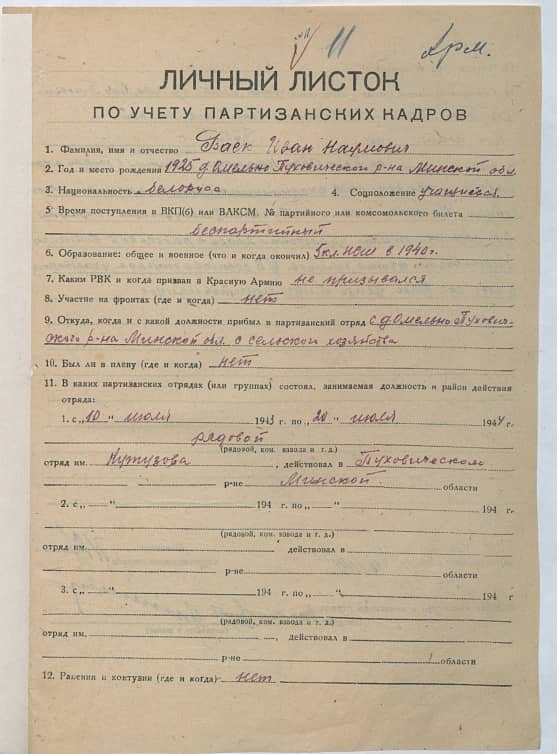 11 Арм.
ЛИЧНЫЙ ЛИСТОК
ПО УЧЕТУ ПАРТИЗАНСКИХ КАДРОВ
1. Фамилия, имя и отчество Фаек Иван Наумович
2. Год и место рождения 1925 д. Омельно Пуховического р-на Минской обл.
3. Национальность белорус 4. Соцположение учащиеся
5. Время поступления в ВКП(б) или ВЛКСМ, № партийного или комсомольского билета
беспартийный
6. Образование: общее и военное (что и когда окончил) 5 кл. НСШ в 1940 г.
7. Каким РВК и когда призван в Красную Армию не призывался
8. Участие на фронтах (где и когда) нет
9. Откуда, когда и с какой должности прибыл в партизанский отряд с д. Омельно Пухович-
ского р-на Минской обл. с сельского хозяйства
10. Был ли в плену (где и когда) нет
11. В каких партизанских отрядах (или группах) состоял, занимаемая должность и район действия
отряда:
1. с „10" июля 1943 г. по „20" июля 1944 г.
рядовой
(рядовой, ком. взвода и т. д.)
отряд им. Кутузова, действовал в Пуховическом
р-не Минской области
2. с „ " 194 г. по „ " 194 г.
(рядовой, ком. взвода и т. д.)
отряд им. действовал в
р-не области
3. с „ " 194 г. по „ " 194 г.
(рядовой, ком. взвода и т. д.)
отряд им. , действовал в
р-не области
12. Ранения и контузии (где и когда) нет